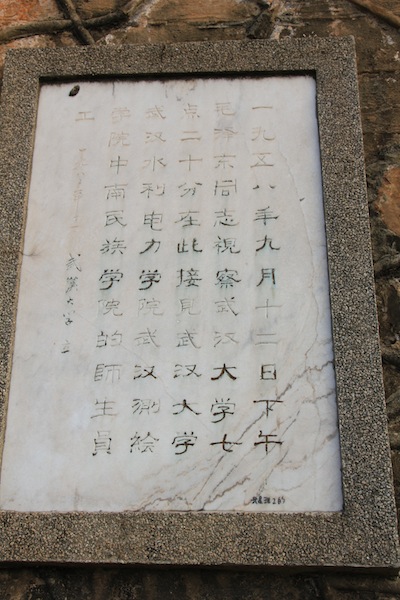 一九五八年九月十二日下午
毛泽东同志視察武汉大学七
点二十分在此接見武汉大学
武汉水利电力学院武汉測绘
学院中南民族学院的師生員
工
武漢大学 立